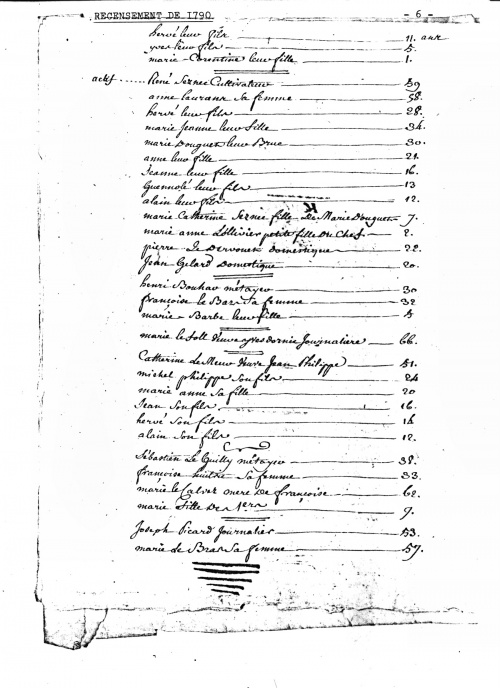 RECENSEMENT DE 1790 - 6 -
hervé leur fils 11. ans
yves leur fils 5.
marie Corentine leur fille 1.
actif ..... René Seznec Cultivateur 59
anne laurans Sa femme 58.
hervé leur fils 28.
marie Jeanne leur fille 34.
marie Douguet leur Brue 30.
anne leur fille 21.
Jeanne leur fille 16.
Guennolé leur fils 13
alain leur fils 12.
marie Catherine Seznec fille De Marie Douguet 7.
marie anne Lollivier petite fille Du Chef. 2.
pierre Le Dervouet Domestique 22.
Jean Gelard Domestique 20.
henri Bouhav métayer 30
françoise le Bars Sa femme 32
marie Barbe leur fille 5
marie le foll Veuve yves Dornic Journaliere 66.
Catherine Le Meur Veuve Jean Philippe 51.
michel philippe Son fils 24
marie anne Sa fille 20
Jean Son fils 16.
hervé Son fils 14
alain Son fils 12.
Sébastien Le Guilly métayer 38.
françoise Sa femme 33.
marie le Calvez mere De françoise 62.
marie fille Du 1er 9.
Joseph Picard Journalier 53.
marie le Bras Sa femme 57.